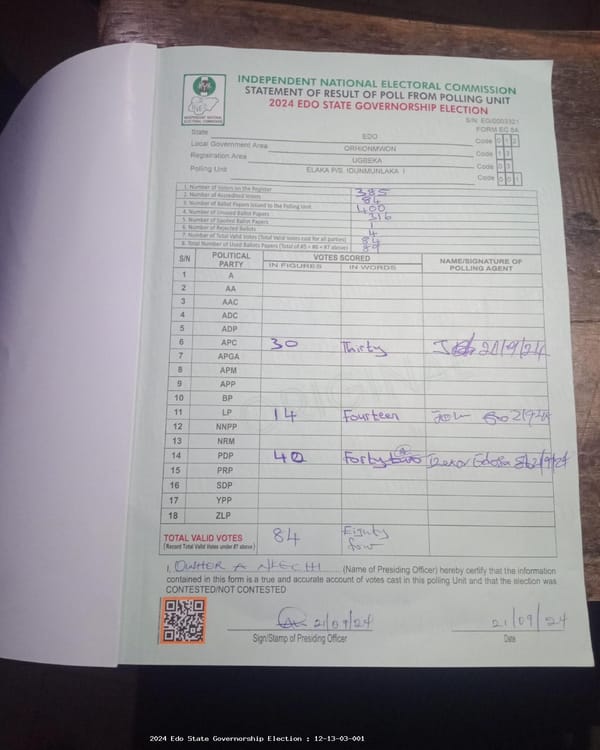 INDEPENDENT NATIONAL ELECTORAL COMMISSION
STATEMENT OF RESULT OF POLL FROM POLLING UNIT
2024 EDO STATE GOVERNORSHIP ELECTION
INDEPENDENT NATIONAL ELECTORAL COMMISSION
S/N: EG/0003321
FORM EC 8A
State EDO Code 0 1 2
Local Government Area ORHIONMWON Code 1 3
Registration Area UGBEKA Code 0 3
Polling Unit ELAKA P/S. IDUNMUNLAKA I Code 0 0 1
1. Number of Voters on the Register 385
2. Number of Accredited Voters 84
3. Number of Ballot Papers Issued to the Polling Unit 400
4. Number of Unused Ballot Papers 316
5. Number of Spoiled Ballot Papers 1
6. Number of Rejected Ballots 4
7. Number of Total Valid Votes (Total Valid Votes cast for all parties) 84
8. Total Number of Used Ballots Papers (Total of #5 + #6 + #7 above) 89
S/N POLITICAL PARTY VOTES SCORED NAME/SIGNATURE OF POLLING AGENT
IN FIGURES IN WORDS
1 A
2 AA
3 AAC
4 ADC
5 ADP
6 APC 30 Thirty 21/9/24
7 APGA
8 APM
9 APP
10 BP
11 LP 14 Fourteen
12 NNPP
13 NRM
14 PDP 40 Forty two
15 PRP
16 SDP
17 YPP
18 ZLP
TOTAL VALID VOTES 84 Eighty four
(Record Total Valid Votes under #7 above)
I, (Name of Presiding Officer) hereby certify that the information
contained in this form is a true and accurate account of votes cast in this polling Unit and that the election was
CONTESTED/NOT CONTESTED
21/09/24 21/09/24
Sign/Stamp of Presiding Officer Date
2024 Edo State Governorship Election : 12-13-03-001